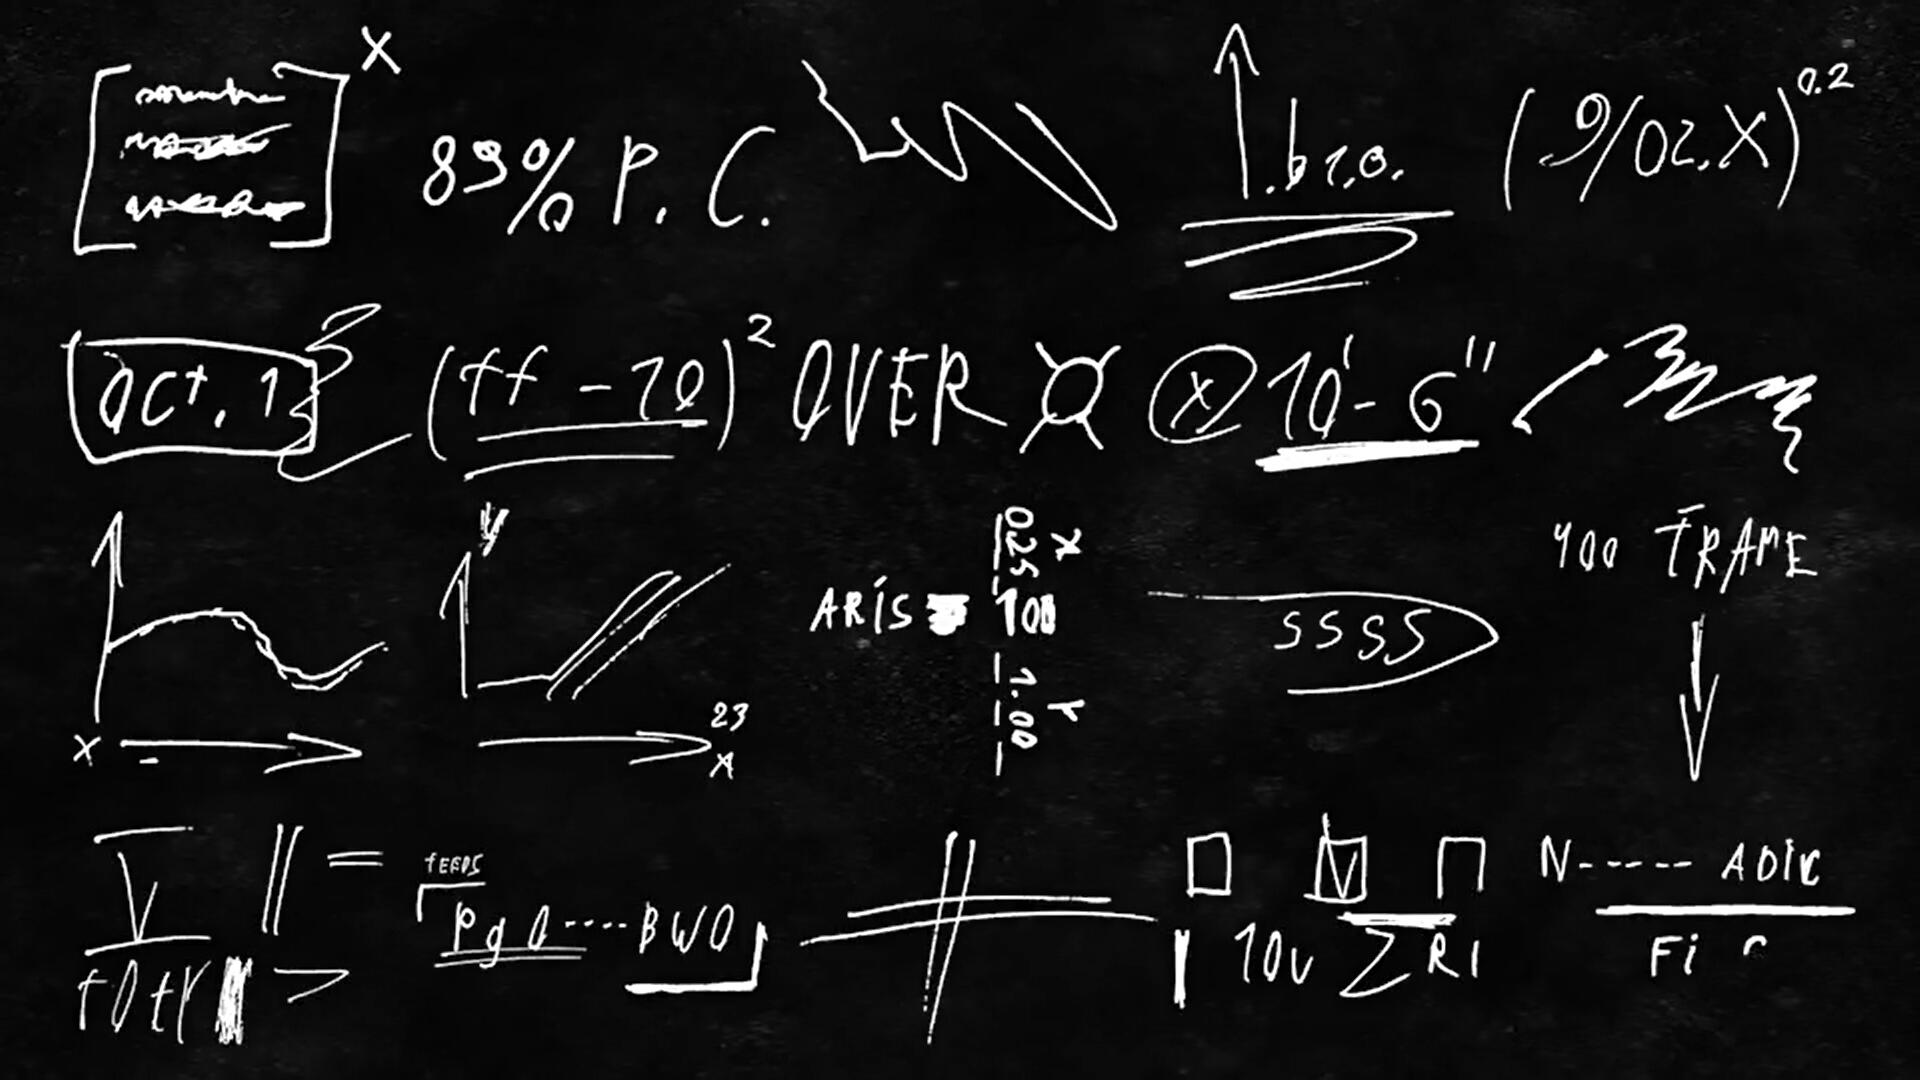 X
89% P. C. .b r.o. (.9/02.X)^0.2
oct. 1 (ff - 10)² OVER X 10' - 6"
y
400 FRAME
0.25 X
ARIS 100
SSSS
1.00 Y
23
X X
FEEDS
V N----- ADIC
Pg 0----BWO 10v ΣR1 Fi C